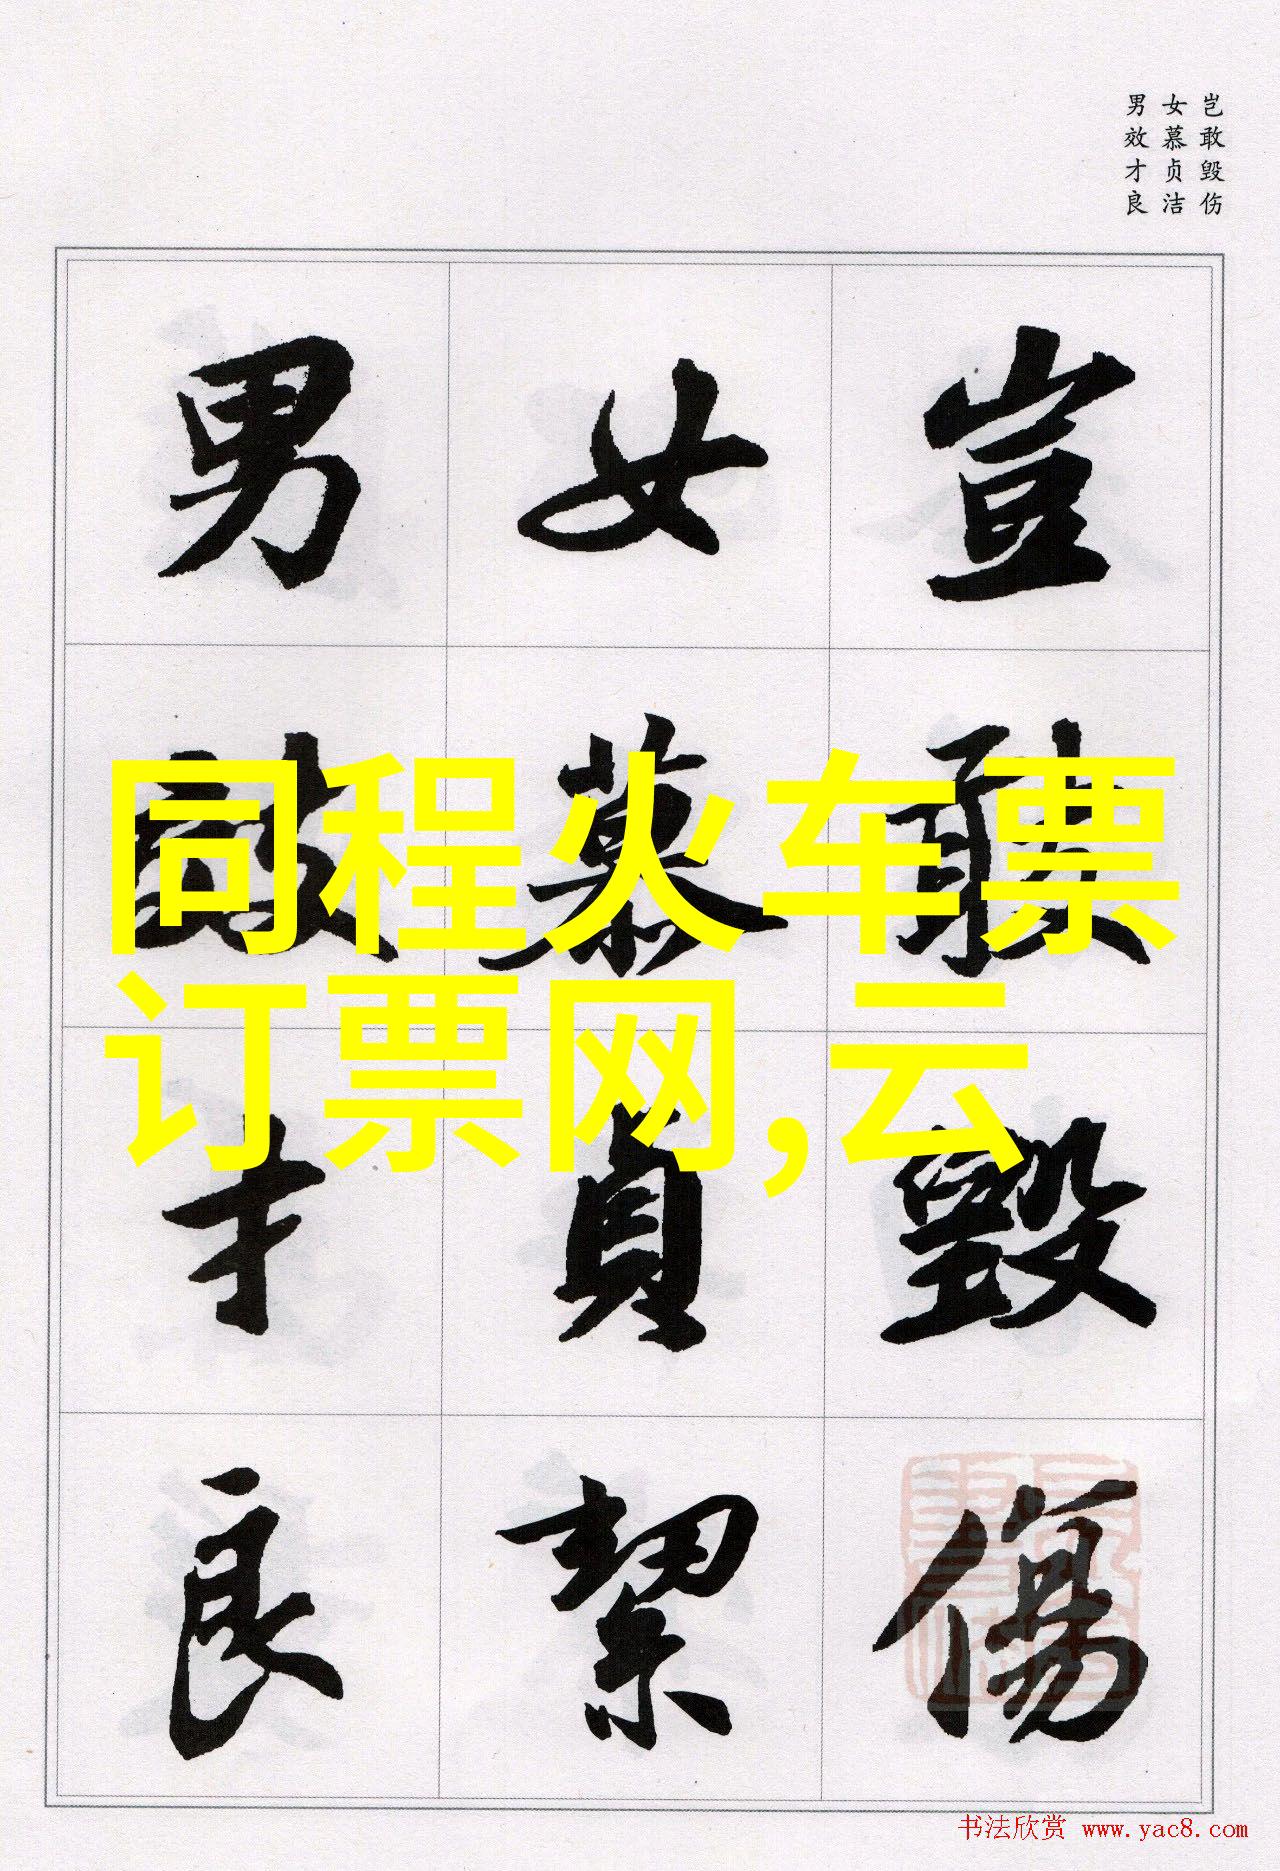 岂敢毁伤
女慕贞洁
男效才良
豈敢毀傷
女慕貞絜
男效才良
同程火车票
订票网,云
书法欣赏 www.yac8.com